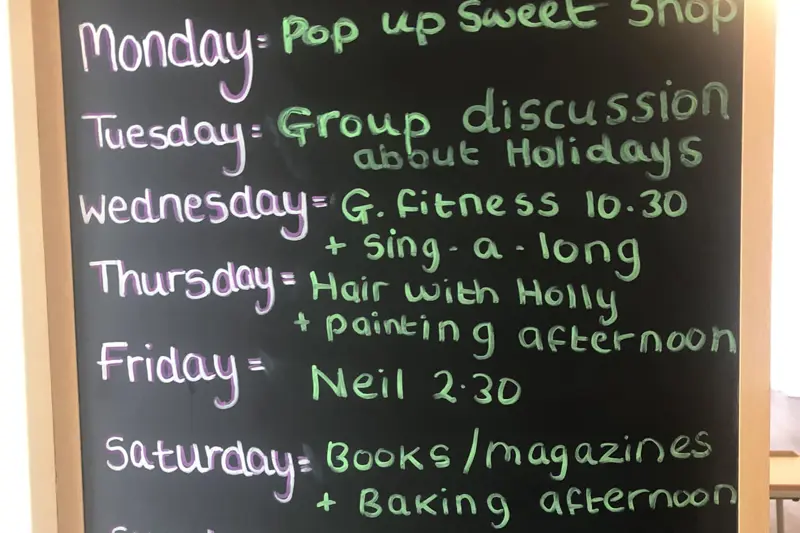 Monday = Pop up Sweet Shop
Tuesday = Group discussion
about Holidays
Wednesday = G. Fitness 10.30
+ Sing-a-long
Thursday = Hair with Holly
+ painting afternoon
Friday = Neil 2.30
Saturday = Books/magazines
+ Baking afternoon